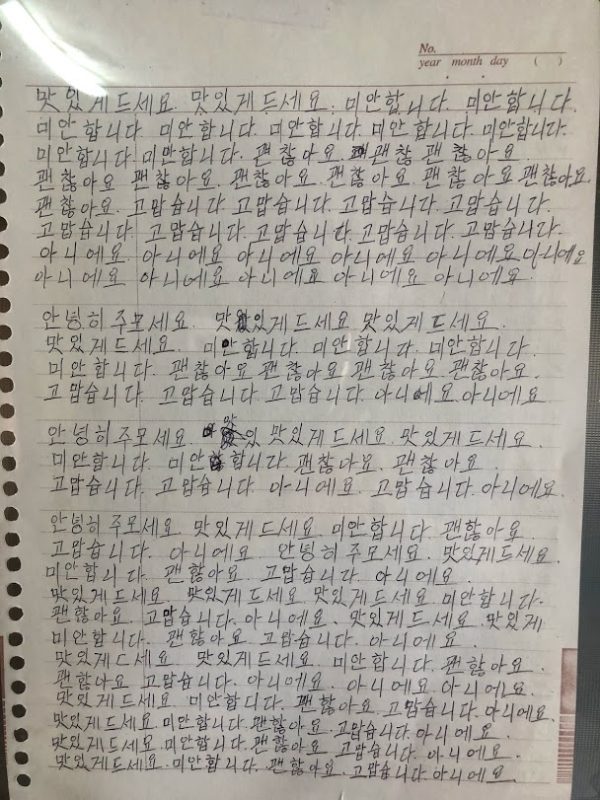 No.
year month day ( )
맛있게드세요. 맛있게드세요. 미안합니다. 미안합니다.
미안합니다. 미안합니다. 미안합니다. 미안합니다. 미안합니다.
미안합니다 미안합니다. 괜찮아요. 괜찮 괜찮아요.
괜찮아요 괜찮아요. 괜찮아요. 괜찮아요. 괜찮아요 괜찮아요.
괜찮아요. 고맙습니다. 고맙습니다. 고맙습니다. 고맙습니다.
고맙습니다 고맙습니다. 고맙습니다. 고맙습니다. 고맙습니다.
아니에요. 아니에요. 아니에요 아니에요 아니에요 아니에요
아니에요 아니에요 아니에요 아니에요 아니에요.
안녕히주모세요. 맛있게드세요 맛있게드세요.
맛있게드세요. 미안합니다. 미안합니다. 미안합니다.
미안합니다. 괜찮아요 괜찮아요 괜찮아요 괜찮아요.
고맙습니다. 고맙습니다 고맙습니다. 아니에요. 아니에요
안녕히주모세요. 맛있 맛있게드세요. 맛있게드세요.
미안합니다. 미안합니다. 괜찮아요. 괜찮아요.
고맙습니다. 고맙습니다. 아니에요. 고맙습니다. 아니에요.
안녕히주모세요. 맛있게드세요. 미안합니다. 괜찮아요.
고맙습니다. 아니에요. 안녕히주모세요. 맛있게드세요.
미안합니다. 괜찮아요. 고맙습니다. 아니에요.
맛있게드세요. 맛있게드세요. 맛있게드세요. 미안합니다.
괜찮아요. 고맙습니다. 아니에요. 맛있게드세요. 맛있게
미안합니다. 괜찮아요. 고맙습니다. 아니에요.
맛있게드세요. 맛있게드세요. 미안합니다. 괜찮아요.
괜찮아요 고맙습니다. 아니에요. 아니에요. 아니에요.
맛있게드세요 미안합디다. 괜찮아요. 고맙습니다. 아니에요.
맛있게드세요. 미안합니다. 괜찮아요. 고맙습니다. 아니에요.
맛있게드세요. 미안합니다. 괜찮아요 고맙습니다. 아니에요.
맛있게드세요. 미안합니다. 괜찮아요. 고맙습니다 아니에요.